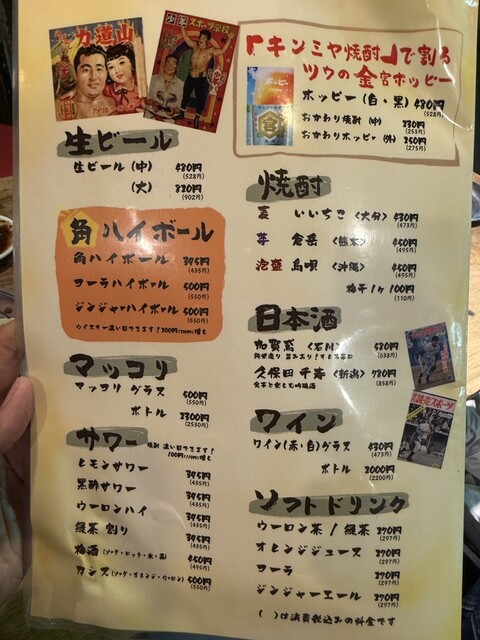 力道山
少年スポーツ学校
「キンミヤ焼酎」で割る
ツウの金宮ホッピー
ホッピー(白・黒) 480円
(528円)
おかわり焼酎(中) 230円
(253円)
おかわりホッピー(外) 250円
(275円)
生ビール
生ビール(中) 480円
(528円)
(大) 820円
(902円)
角ハイボール
角ハイボール 395円
(435円)
コーラハイボール 500円
(550円)
ジンジャーハイボール 500円
(550円)
ウイスキー濃い目できます!
マッコリ
マッコリ グラス 500円
(550円)
ボトル 2300円
(2530円)
サワー
焼酎 濃い目できます!
100円(110円)増し
レモンサワー 395円
(435円)
黒酢サワー 395円
(435円)
ウーロンハイ 395円
(435円)
緑茶割り 395円
(435円)
梅酒(ソーダ・ロック・水・湯) 450円
(495円)
カシス(ソーダ・オレンジ・ウーロン) 500円
(550円)
焼酎
麦 いいちこ〈大分〉 430円
(473円)
芋 倉岳〈熊本〉 450円
(495円)
泡盛 島唄〈沖縄〉 450円
(495円)
梅干1ヶ 100円
(110円)
日本酒
加賀鳶〈石川〉 580円
(638円)
久保田 千寿〈新潟〉 780円
(858円)
食事と楽しむ吟醸酒
ワイン
ワイン(赤・白)グラス 430円
(473円)
ボトル 2000円
(2200円)
ソフトドリンク
ウーロン茶 / 緑茶 270円
(297円)
オレンジジュース 270円
(297円)
コーラ 270円
(297円)
ジンジャーエール 270円
(297円)
( )は消費税込みの料金です